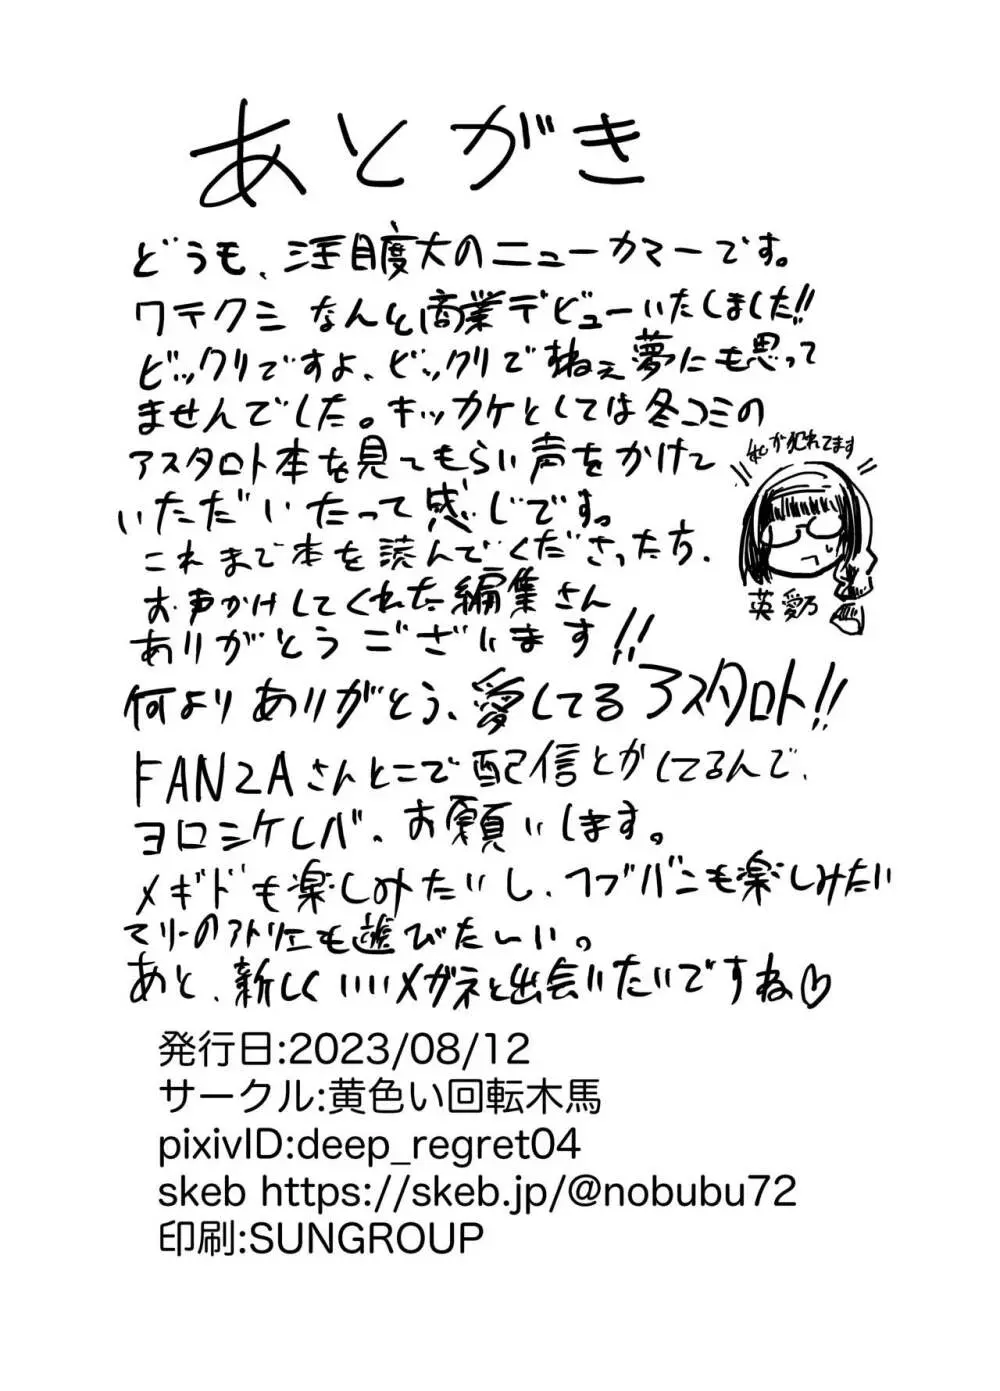 あとがき
どうも、注目度大のニューカマーです。
ワテクシ なんと商業デビューいたしました!!
ビックリですよ、ビックリでねぇ夢にも思って
ませんでした。キッカケとしては冬コミの
アスタロト本を見てもらい声をかけて
いただいたって感じです。
これまで本を読んでくださった方、
お声かけしてくれた編集さん
ありがとうございます!!
何よりありがとう、愛してるアスタロト!!
FANZAさんとこで配信とかしてるんで、
ヨロシケレバ、お願いします。
メギドも楽しみたいし、ヘブバンも楽しみたい
マリーのアトリエも遊びたーい。
あと、新しくいいメガネと出会いたいですね♡
が犯れてます
英愛乃
発行日:2023/08/12
サークル:黄色い回転木馬
pixivID:deep_regret04
skeb https://skeb.jp/@nobubu72
印刷:SUNGROUP